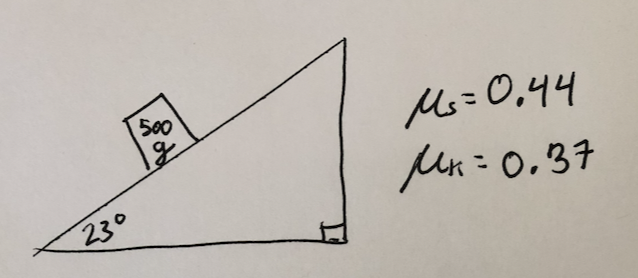 500
g
23°
μs = 0.44
μk = 0.37